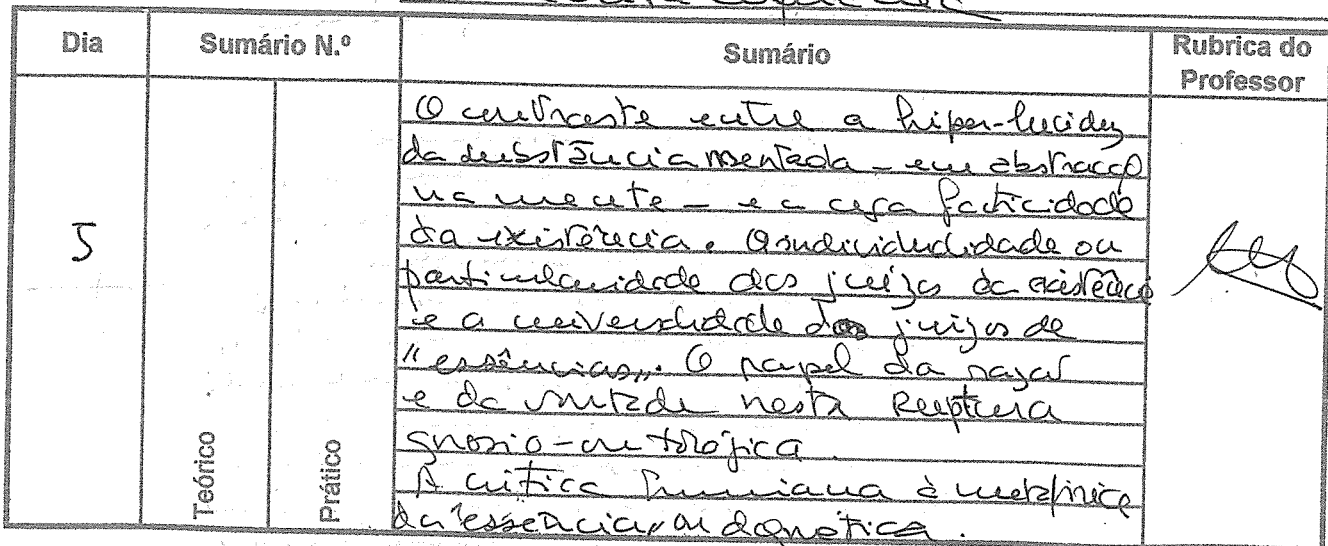 Dia Sumário N.º Sumário Rubrica do Professor
O contraste entre a hiper-lucidez
da substância mentada - em abstracção
na mente - e a cega facticidade
da existência. A individualidade ou
particularidade dos juízos da existência
e a universalidade dos juízos de
"essências". O papel da razão
e da vontade nesta Ruptura
gnosio-ontológica.
A crítica humiana à metafísica
da "essência" ou dogmática.
5
Teórico
Prático